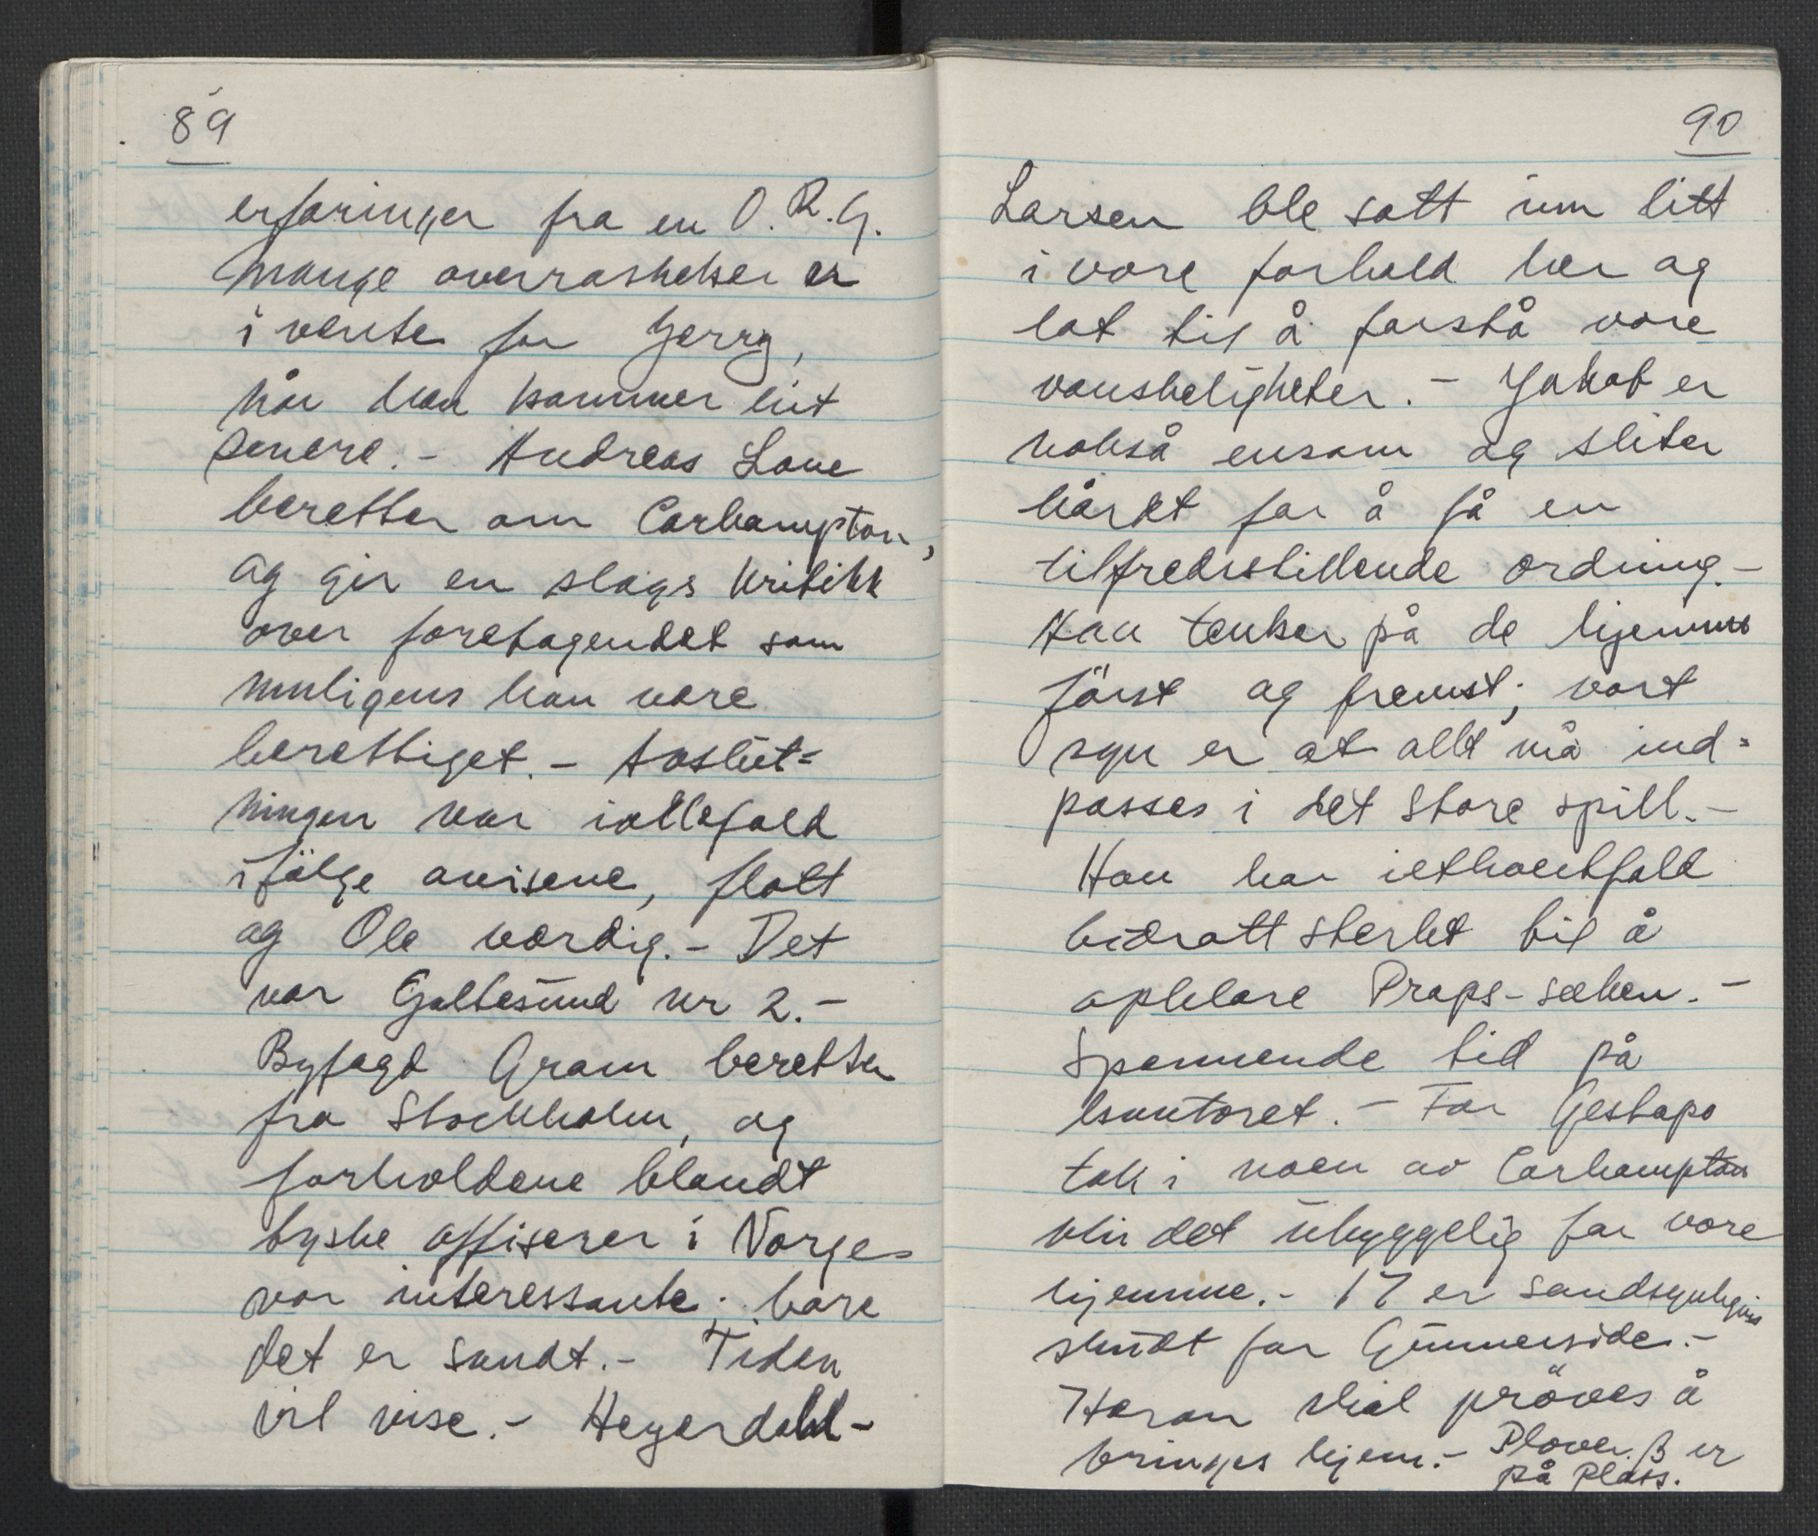 89
erfaringer fra en O.R.G.
Mange overraskelser er
i vente for Jerry,
når han kommer lit
senere. - Andreas Lone
beretter om Carhampton,
og gir en slags kritikk
over foretagendet som
muligens kan være
berettiget. - Avslut-
ningen var iallefald
ifölge avisene, flott
og Ole verdig. - Det
var Galtesund nr 2. -
Byfogd Gram beretter
fra Stockholm, og
forholdene blandt
tyske offiserer i Norge
var interessante; bare
det er sandt. - Tiden
vil vise. - Heyerdahl-
90
Larsen ble satt inn litt
i vore forhold her og
lot til å forstå vore
vanskeligheter. - Jakob er
nokså ensom og sliter
hårdt for å få en
tilfredsstillende ordning. -
Han tenker på de hjemme
först og fremst; vort
syn er at allt må ind-
passes i det store spill. -
Han har iethvertfald
bidratt sterkt til å
opklare Praps-saken. -
Spennende tid på
kontoret. - Før Gestapo
tak i noen av Carhampton
blir det uhyggelig for vore
hjemme. - 17 er sandsynligvis
skudt for Gunnerside. -
Haran skal pröves å
bringes hjem. - Plover B er
på plass.